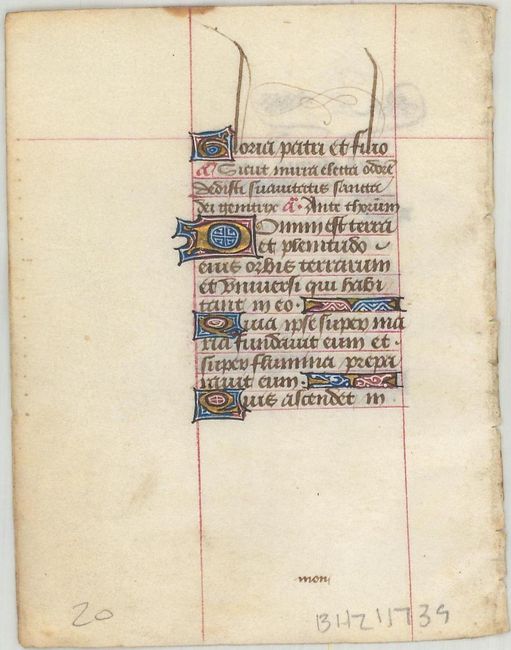 Gloria patri et filio
A Sicut mirra electa odorē
dedisti suavitatis sancta
dei genitrix A. Ante thorum
Domini est terra
et plenitudo
eius orbis terrarum
et vniversi qui habi
tant in eo.
Quia ipse super ma
ria fundavit eum et.
super flumina prepa
ravit eum.
Quis ascendet in
mon
20